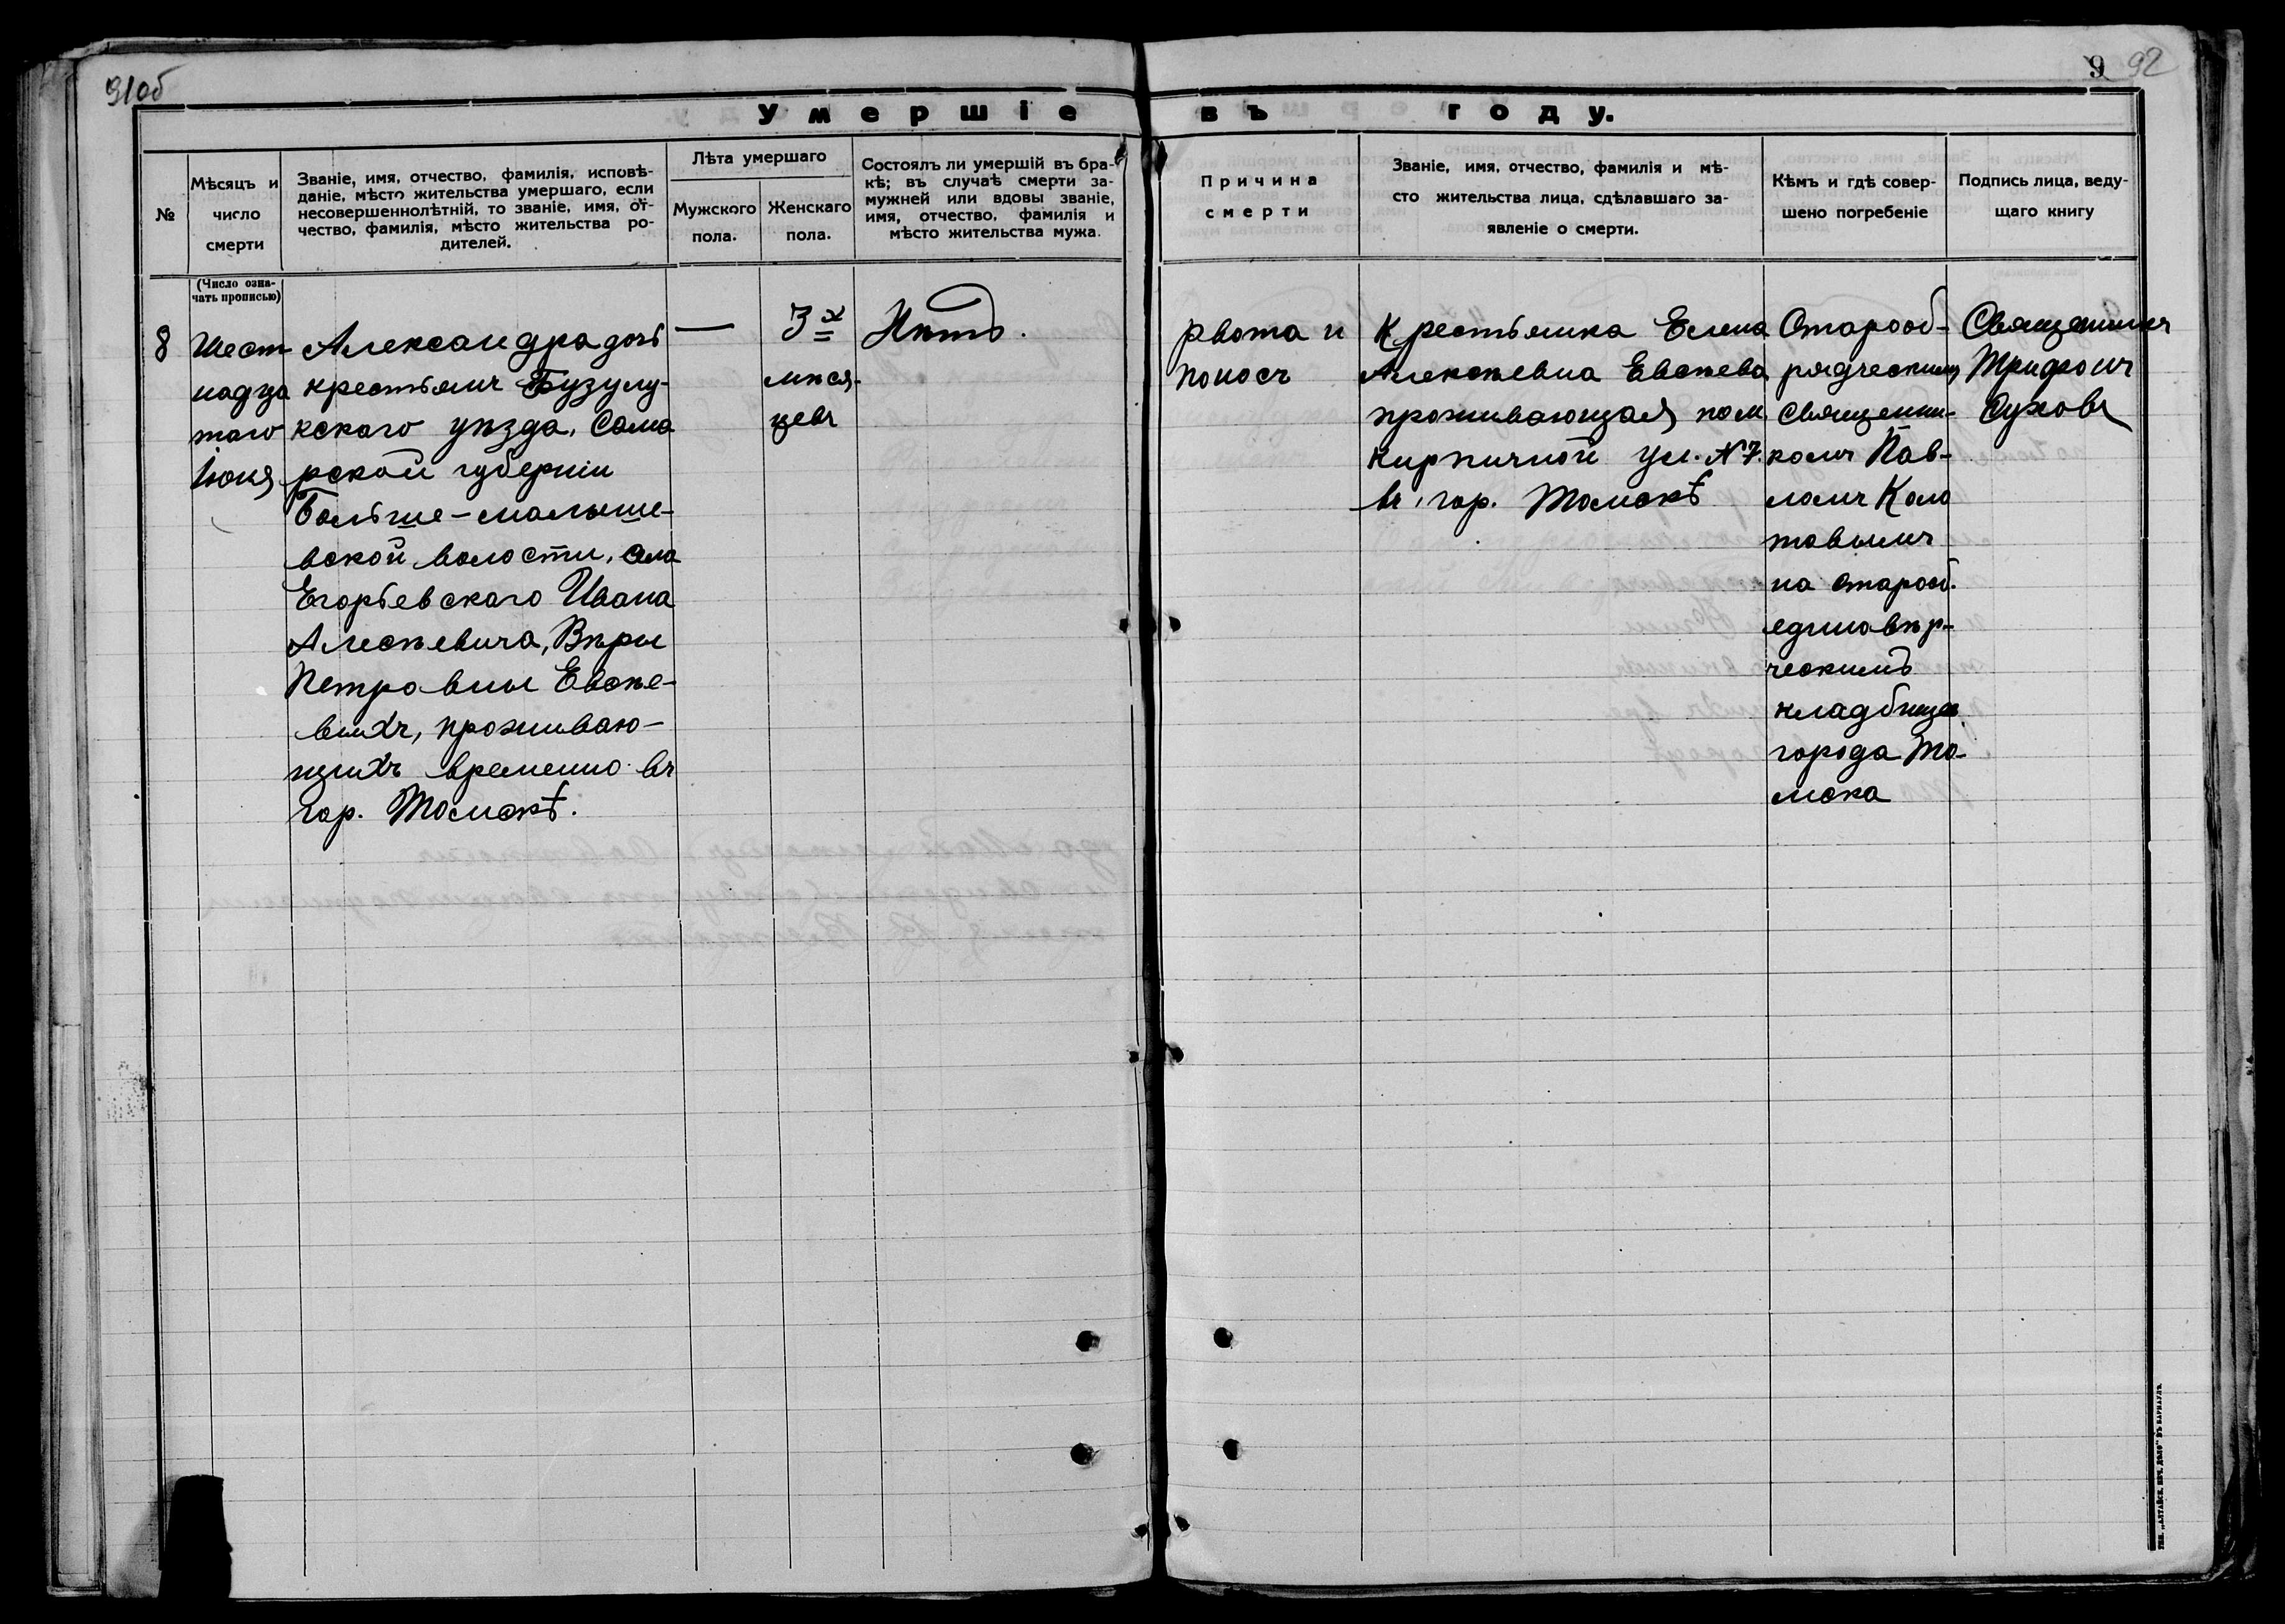 91об
9 92
Умершіе въ году.
№
Мѣсяцъ и
число
смерти
Званіе, имя, отчество, фамилія, исповѣ-
даніе, мѣсто жительства умершаго, если
несовершеннолѣтній, то званіе, имя, от-
чество, фамилія, мѣсто жительства ро-
дителей.
Лѣта умершаго
Мужского
пола.
Женскаго
пола.
Состоялъ ли умершій въ бра-
кѣ; въ случаѣ смерти за-
мужней или вдовы званіе,
имя, отчество, фамилія и
мѣсто жительства мужа.
Причина
смерти
Званіе, имя, отчество, фамилія и мѣ-
сто жительства лица, сдѣлавшаго за-
явленіе о смерти.
Кѣмъ и гдѣ совер-
шено погребеніе
Подпись лица, веду-
щаго книгу
(Число озна-
чать прописью)
8
Шест
надца
таго
Іюня
Александра дочь
крестьянъ Бузулу-
кскаго уѣзда, Сама
рской губерніи
Больше-малыше-
вской волости, села
Егорьевскаго Ивана
Алесѣевича, Вѣры
Петровны Евсѣе-
выхъ, проживаю-
щихъ временно въ
гор. Томскѣ.
—
3х
мѣся-
цевъ
Нѣтъ.
рвота и
поносъ
Крестьянка Елена
Алексѣевна Евсѣева
проживающая по м.
Кирпичной ул. № 7.
въ гор. Томскѣ
Старооб-
рядческимъ
священни-
комъ Пав-
ломъ Коло
товымъ
на старооб.
единовѣр-
ческимъ
кладбище
города То-
мска
Священникъ
Трифонъ
Суховъ
ТИП. „АЛТАЙСК. ПЕЧ. ДѢЛО" ВЪ БАРНАУЛѢ.